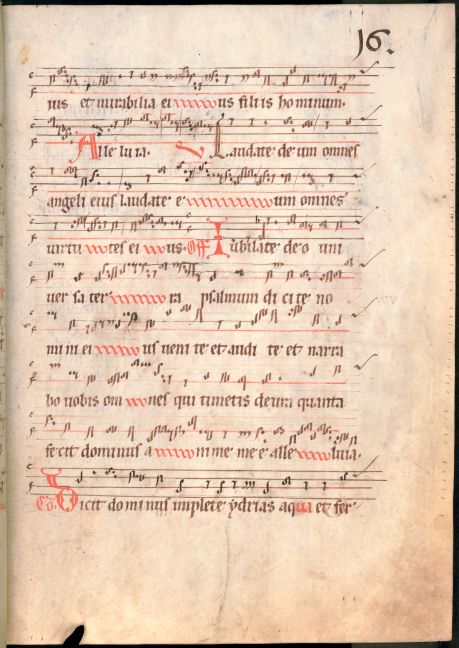 16.
ius et mirabilia ei us filiis hominum.
Alleluia. V Laudate deum omnes
angeli eius laudate e um omnes
virtu tes ei us. Off Iubilate deo uni
versa ter ra psalmum dicite no
mini ei us venite et audi te et narra
bo vobis om nes qui timetis deum quanta
fecit dominus a nime mee alle luia.
Co. Dicit dominus implete ydrias aqua et fer